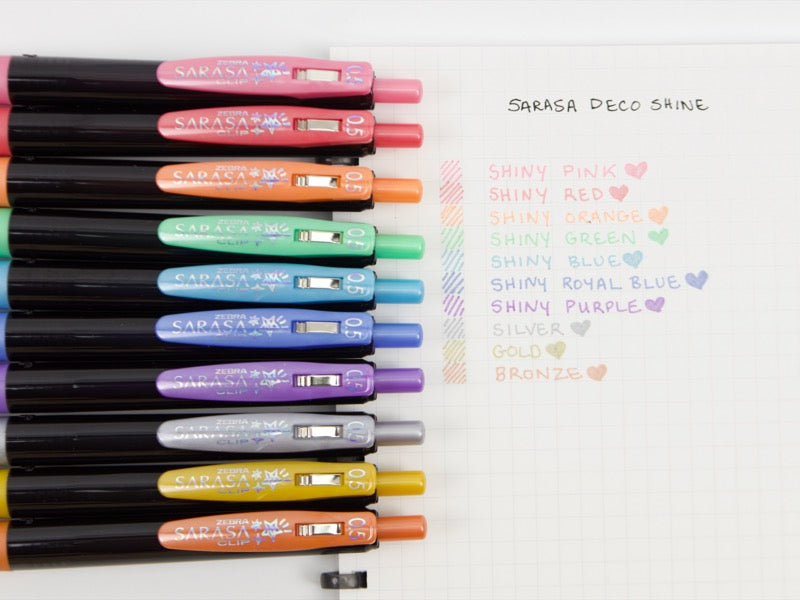 ZEBRA
SARASA
CLIP
0.5
ZEBRA
SARASA
CLIP
0.5
ZEBRA
SARASA
CLIP
0.5
ZEBRA
SARASA
CLIP
0.5
ZEBRA
SARASA
CLIP
0.5
ZEBRA
SARASA
CLIP
0.5
ZEBRA
SARASA
CLIP
0.5
ZEBRA
SARASA
CLIP
0.5
ZEBRA
SARASA
CLIP
0.5
ZEBRA
SARASA
CLIP
0.5
SARASA DECO SHINE
SHINY PINK
SHINY RED
SHINY ORANGE
SHINY GREEN
SHINY BLUE
SHINY ROYAL BLUE
SHINY PURPLE
SILVER
GOLD
BRONZE